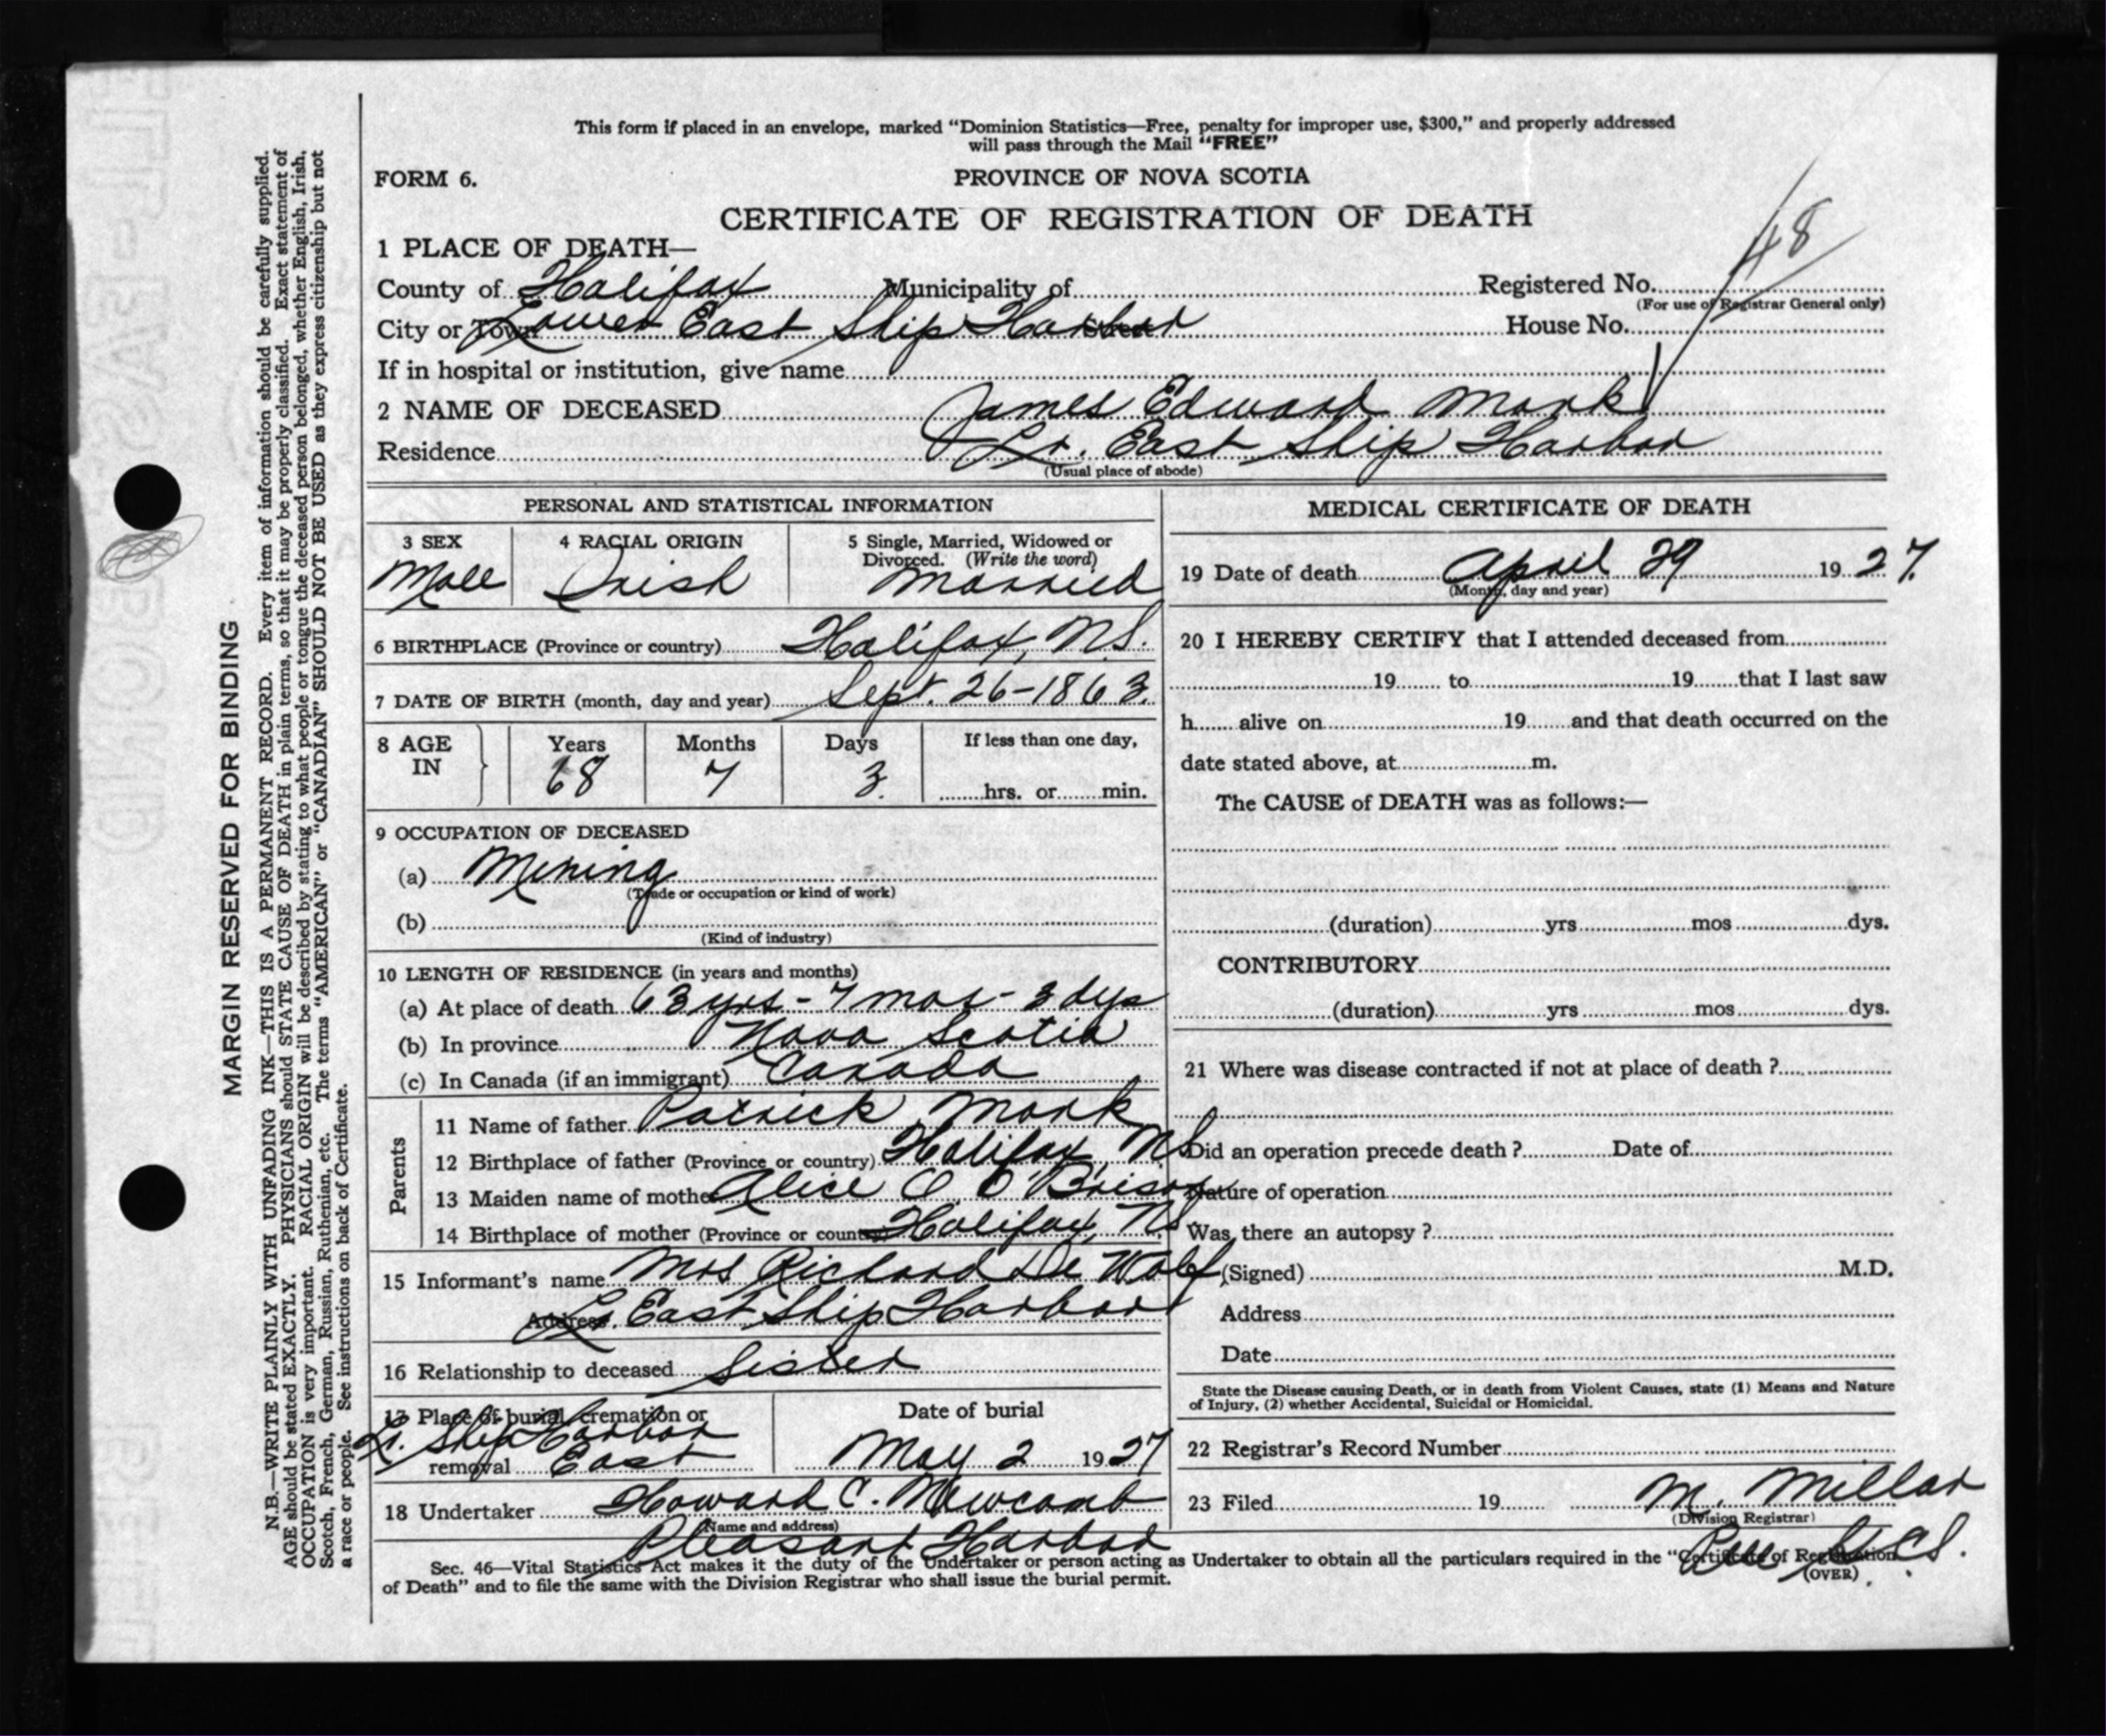 This form if placed in an envelope, marked “Dominion Statistics—Free, penalty for improper use, $300,” and properly addressed
will pass through the Mail “FREE”
FORM 6.
PROVINCE OF NOVA SCOTIA
CERTIFICATE OF REGISTRATION OF DEATH
48
1 PLACE OF DEATH—
County of Halifax Municipality of Registered No.
(For use of Registrar General only)
City or Town Lower East Ship Harbor Street House No.
If in hospital or institution, give name
2 NAME OF DECEASED James Edward Monk
Residence Lr. East Ship Harbor
(Usual place of abode)
PERSONAL AND STATISTICAL INFORMATION
3 SEX 4 RACIAL ORIGIN 5 Single, Married, Widowed or
Divorced. (Write the word)
Male Irish Married
6 BIRTHPLACE (Province or country) Halifax, N.S.
7 DATE OF BIRTH (month, day and year) Sept. 26-1863.
8 AGE IN Years Months Days If less than one day,
68 7 3. hrs. or min.
9 OCCUPATION OF DECEASED
(a) Mining
(Trade or occupation or kind of work)
(b)
(Kind of industry)
10 LENGTH OF RESIDENCE (in years and months)
(a) At place of death 63 yrs - 7 mos - 3 dys
(b) In province Nova Scotia
(c) In Canada (if an immigrant) Canada
Parents
11 Name of father Patrick Monk
12 Birthplace of father (Province or country) Halifax, N.S.
13 Maiden name of mother Alice O'Brison
14 Birthplace of mother (Province or country) Halifax, N.S.
15 Informant's name Mrs Richard De Wolf
Address Lr. East Ship Harbor
16 Relationship to deceased Sister
17 Place of burial, cremation or Date of burial
Lr. Ship Harbor
removal East May 2 1927
18 Undertaker Howard C. Newcomb
(Name and address)
Pleasant Harbor
MEDICAL CERTIFICATE OF DEATH
19 Date of death April 29 1927.
(Month, day and year)
20 I HEREBY CERTIFY that I attended deceased from
19 to 19 that I last saw
h alive on 19 and that death occurred on the
date stated above, at m.
The CAUSE of DEATH was as follows:—
(duration) yrs mos dys.
CONTRIBUTORY
(duration) yrs mos dys.
21 Where was disease contracted if not at place of death ?
Did an operation precede death ? Date of
Nature of operation
Was there an autopsy ?
(Signed) M.D.
Address
Date
State the Disease causing Death, or in death from Violent Causes, state (1) Means and Nature
of Injury, (2) whether Accidental, Suicidal or Homicidal.
22 Registrar's Record Number
23 Filed 19 M. Millar
(Division Registrar)
Sec. 46—Vital Statistics Act makes it the duty of the Undertaker or person acting as Undertaker to obtain all the particulars required in the “Certificate of Registration
of Death” and to file the same with the Division Registrar who shall issue the burial permit.
(OVER)
MARGIN RESERVED FOR BINDING
N.B.—WRITE PLAINLY WITH UNFADING INK—THIS IS A PERMANENT RECORD. Every item of information should be carefully supplied.
AGE should be stated EXACTLY. PHYSICIANS should STATE CAUSE OF DEATH in plain terms, so that it may be properly classified. Exact statement of
OCCUPATION is very important. RACIAL ORIGIN will be described by stating to what people or tongue the deceased person belonged, whether English, Irish,
Scotch, French, German, Russian, Ruthenian, etc. The terms “AMERICAN” or “CANADIAN” SHOULD NOT BE USED as they express citizenship but not
a race or people. See instructions on back of Certificate.